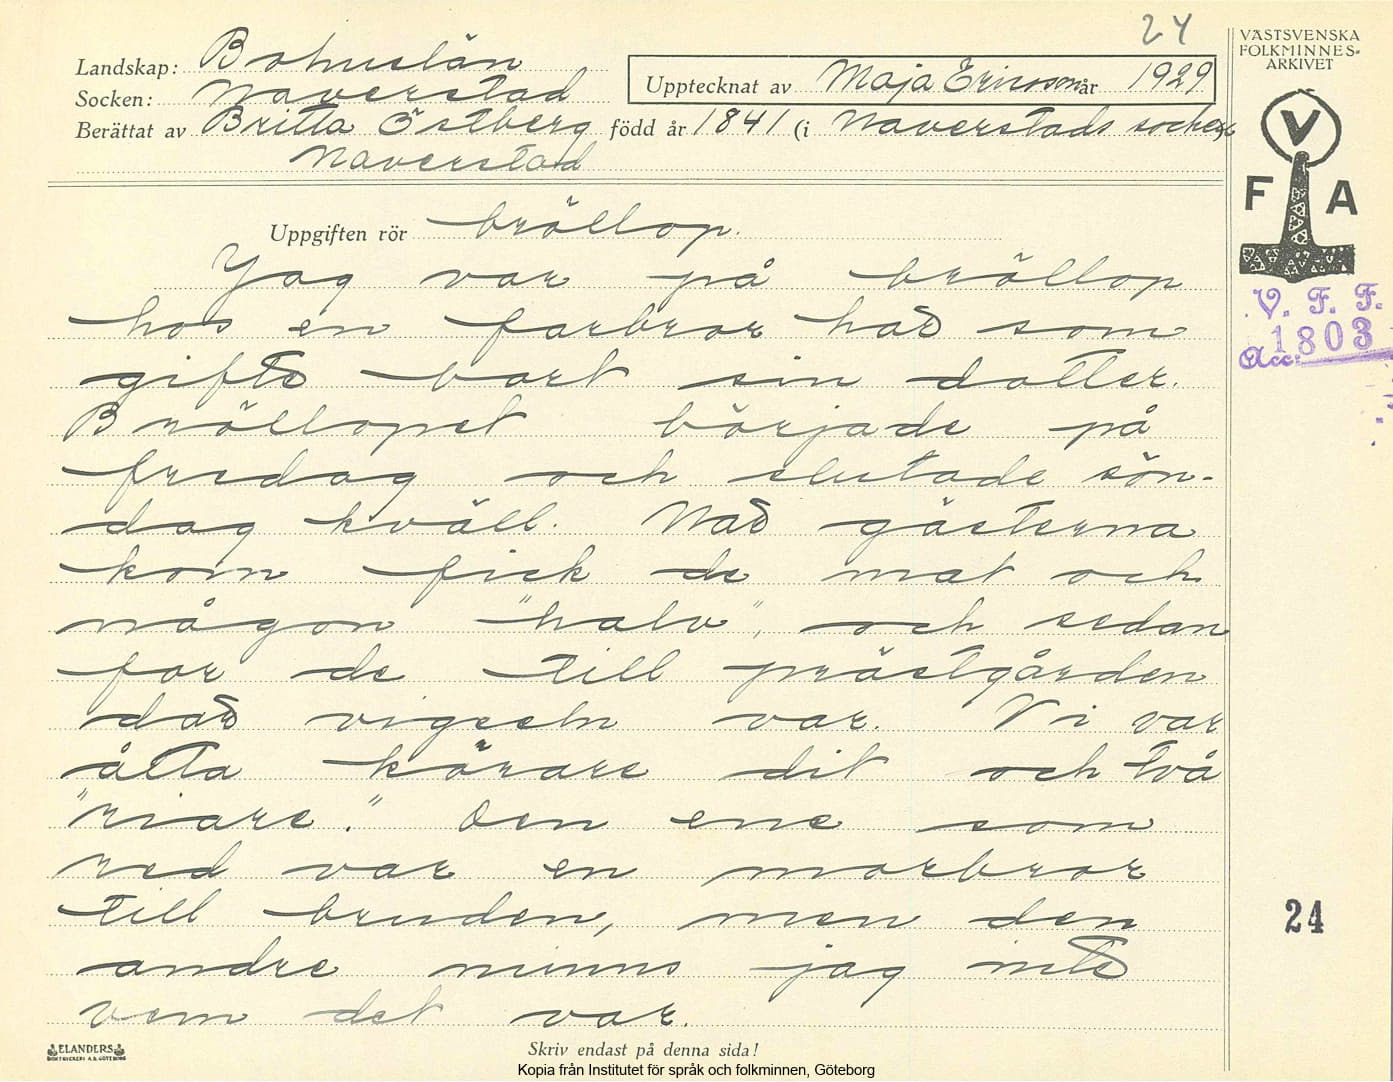 24
Landskap: Bohuslän
Socken: Naverstad
Upptecknat av Maja Ericson år 1929
Berättat av Britta Östberg född år 1841 (i Naverstads socken)
Naverstad
VÄSTSVENSKA
FOLKMINNES-
ARKIVET
V
F A
V. F. F.
Acc: 1803
Uppgiften rör bröllop.
Jag var på bröllop
hos en farbror här som
gifte bort sin dotter.
Bröllopet började på
fredag och slutade sön-
dag kväll. När gästerna
kom fick de mat och
någon "halv", och sedan
for de till prästgården
där vigseln var. Vi var
åtta körare dit och två
"riare." Den ene som
red var en morbror
till bruden, men den
andre minns jag inte
vem det var.
24
ELANDERS
BOKTRYCKERI A.B. GÖTEBORG
Skriv endast på denna sida!
Kopia från Institutet för språk och folkminnen, Göteborg